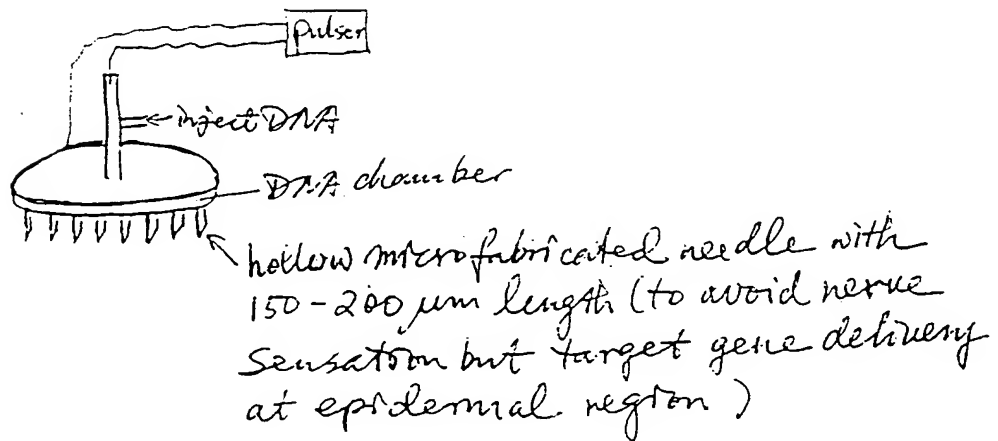 pulser
inject DNA
DNA chamber
hollow microfabricated needle with
150-200 µm length (to avoid nerve
sensation but target gene delivery
at epidermal region)